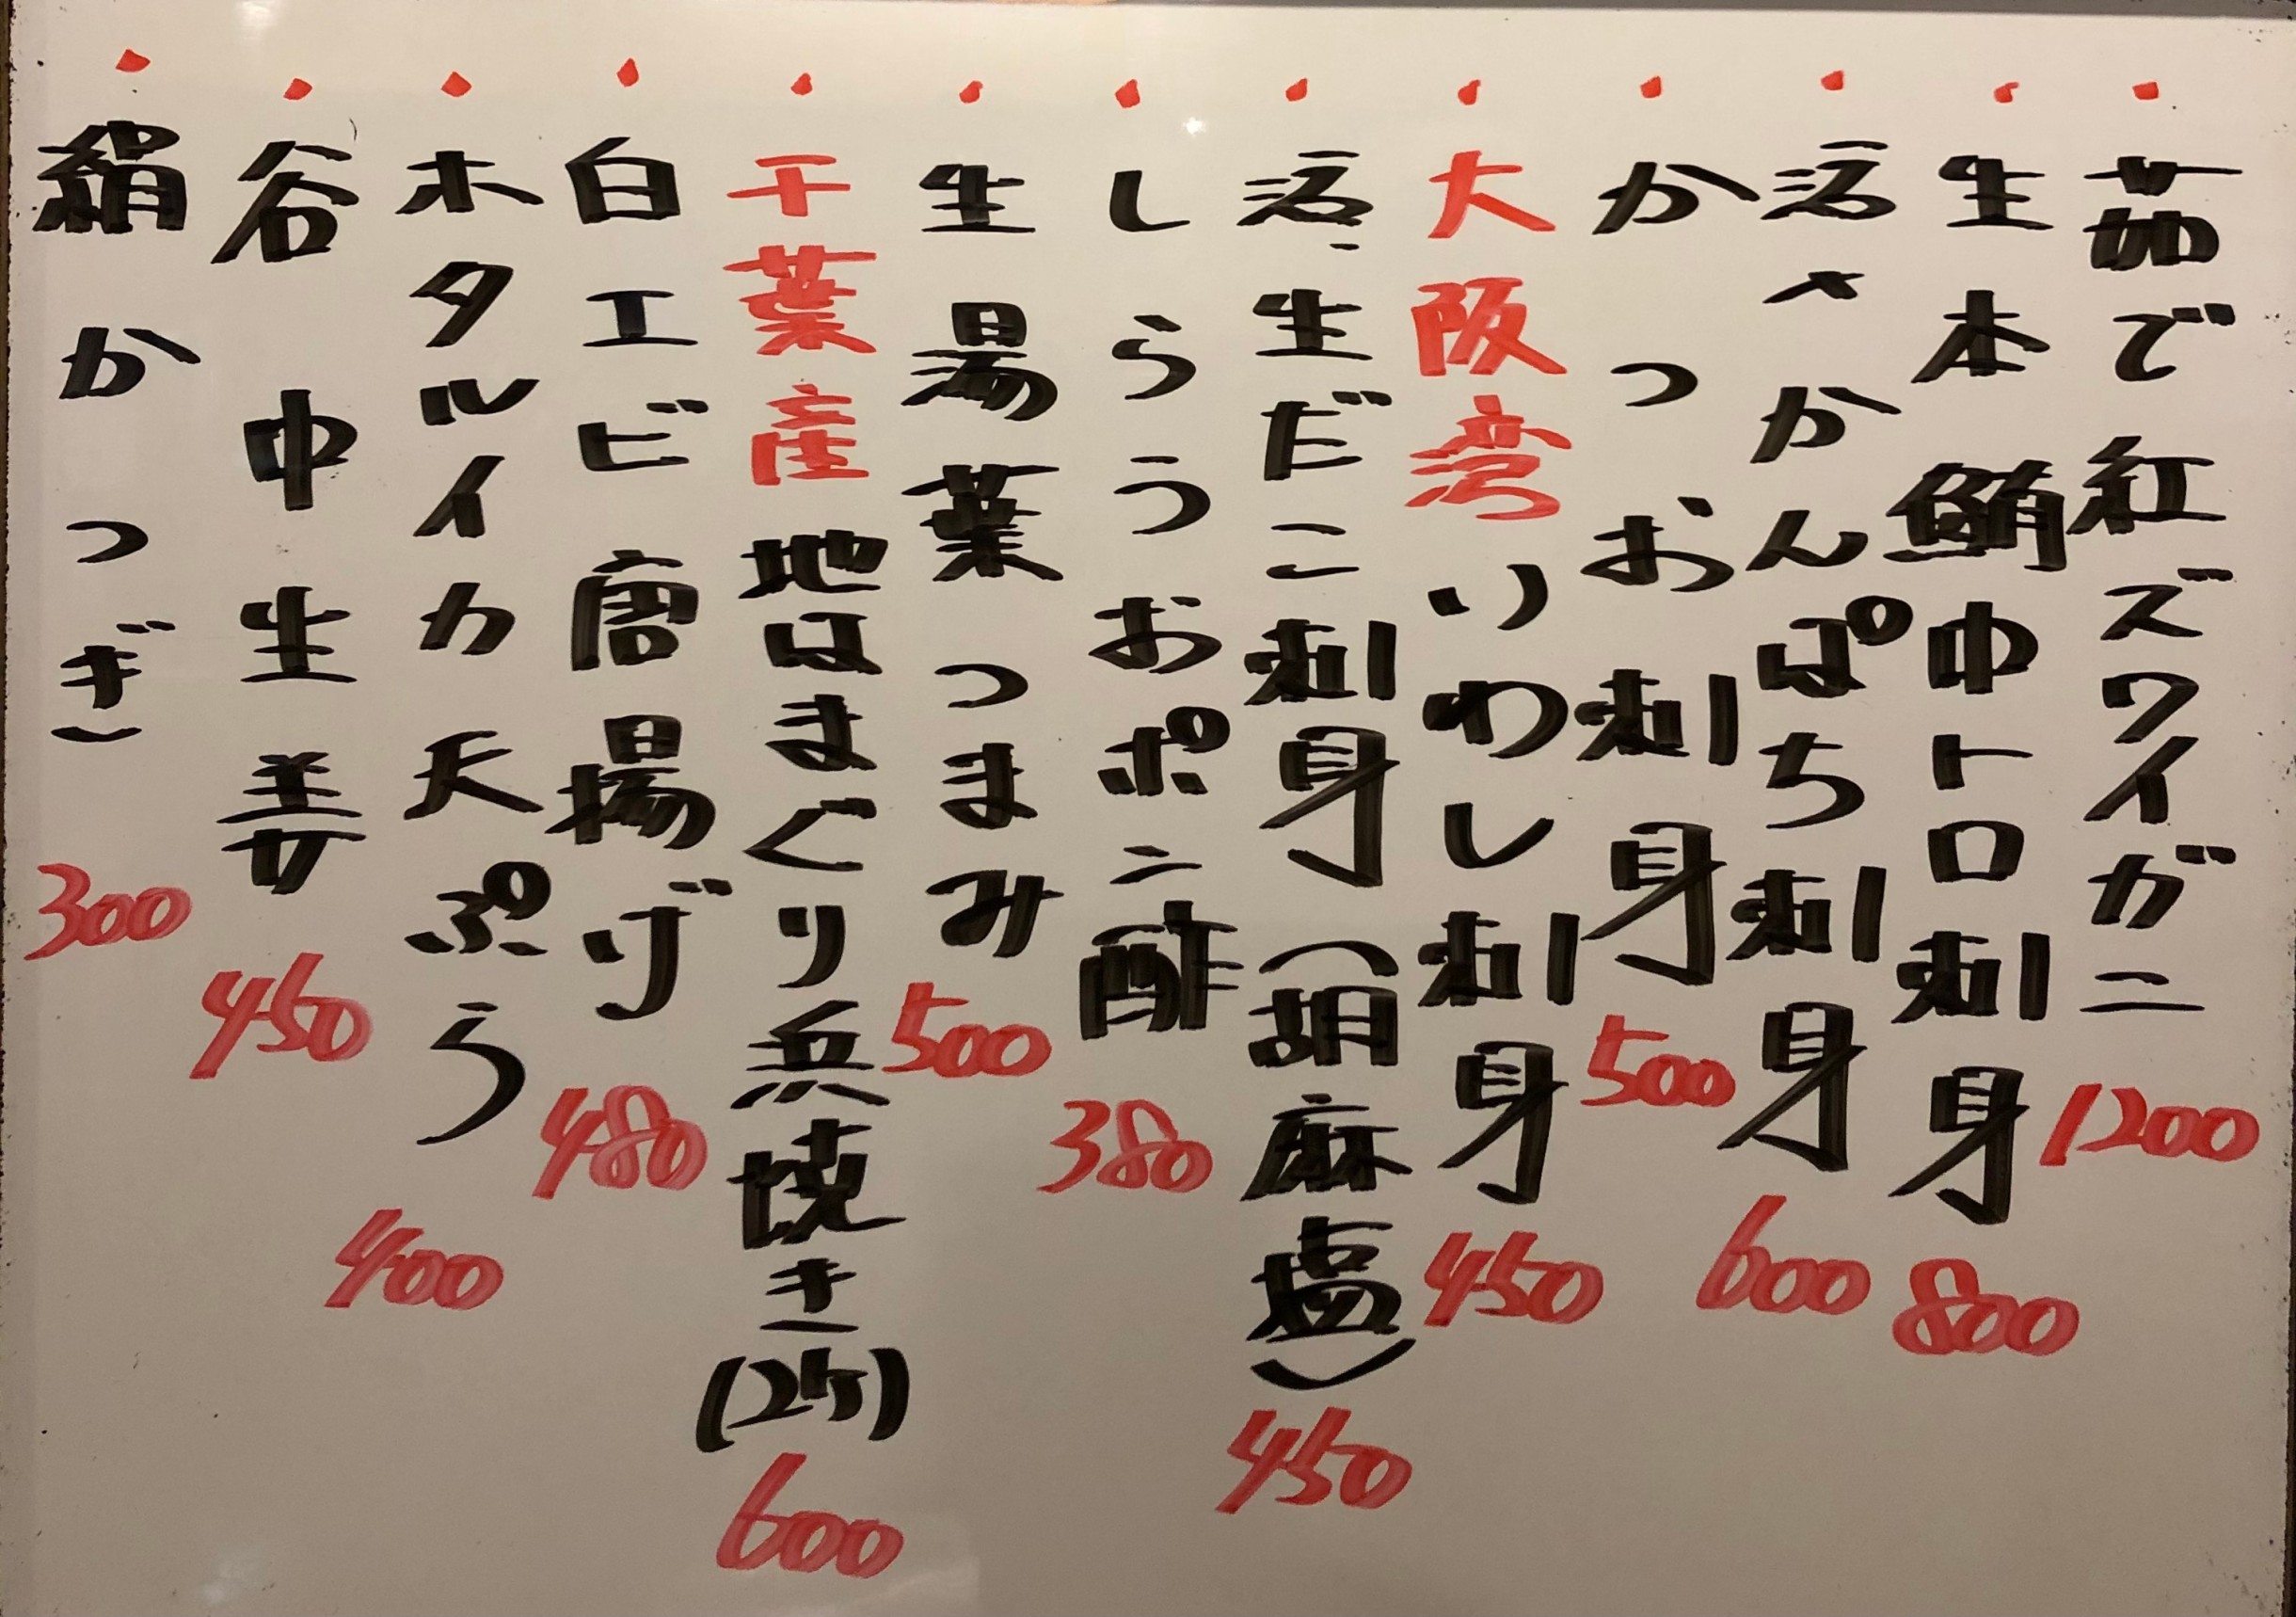 茹で紅ズワイガニ 1200
生本鮪中トロ刺身 800
活〆かんぱち刺身 600
かつお刺身 500
大阪湾いわし刺身 450
活、生だこ刺身(胡麻塩) 450
しらうおポン酢 380
生湯葉つまみ 500
千葉産地はまぐり浜焼き(2ケ) 600
白エビ唐揚げ 480
ホタルイカ天ぷら 400
谷中生姜 450
絹かつぎ 300